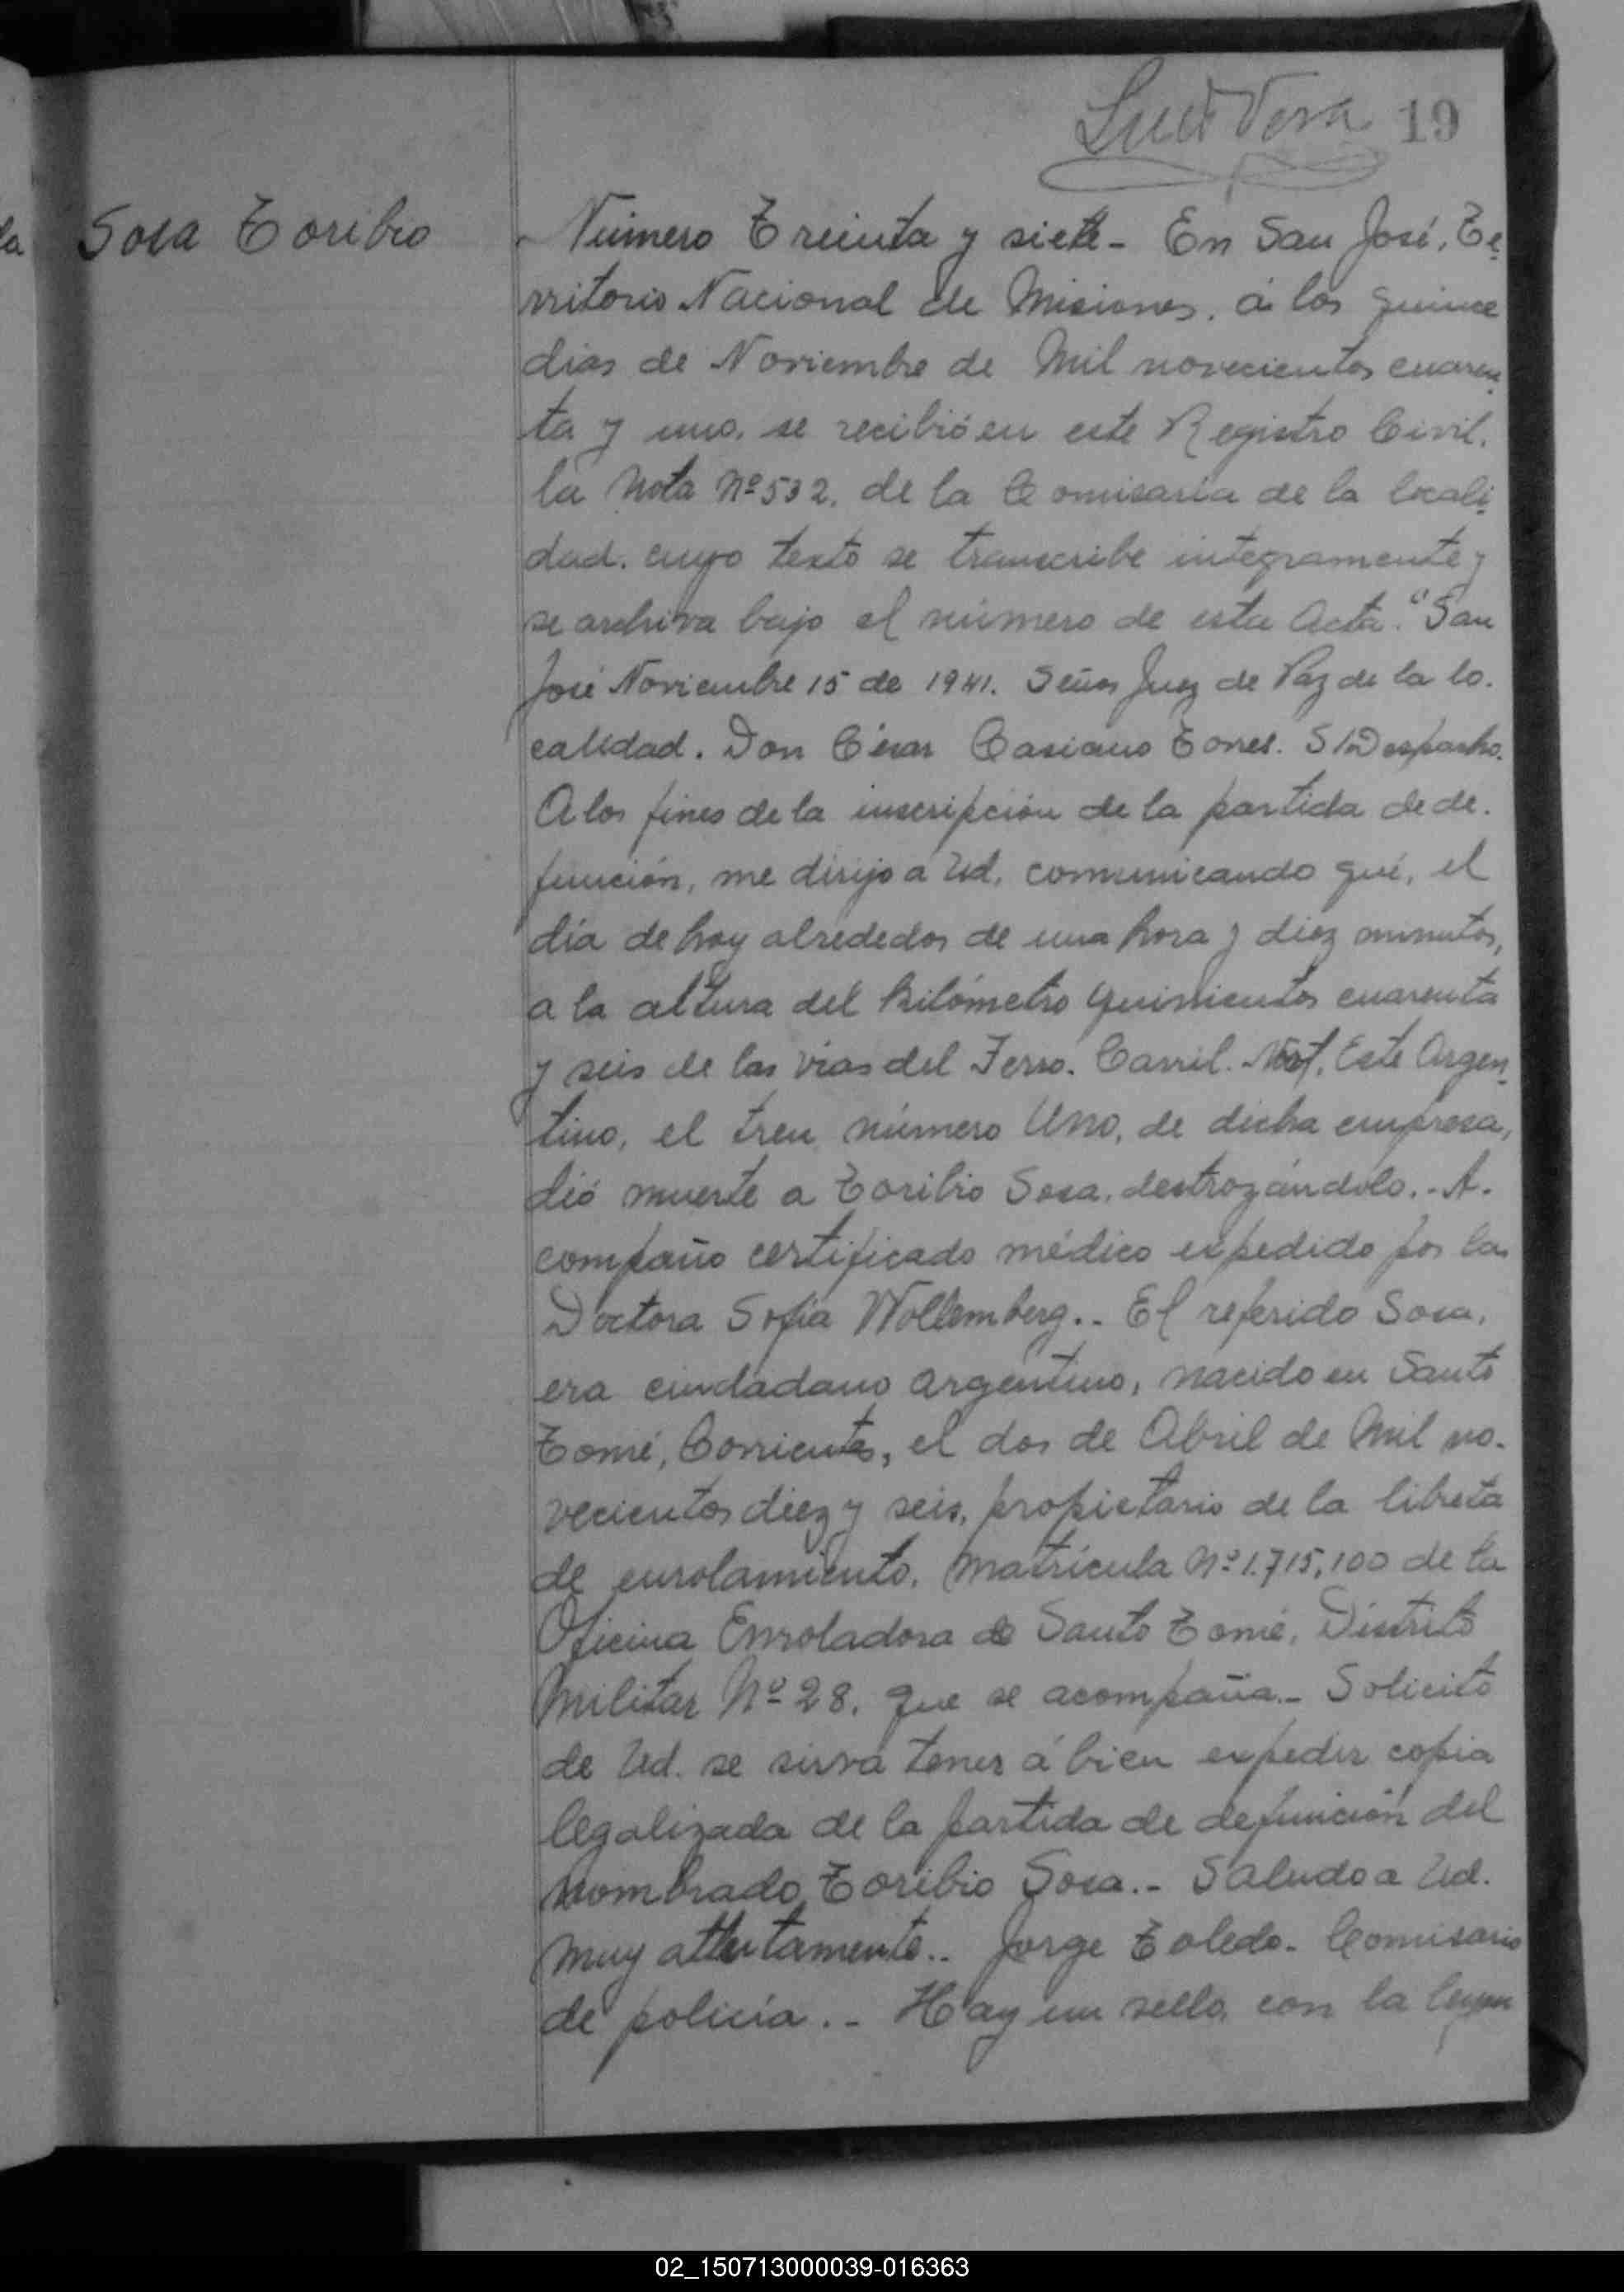 19
Sosa Toribio
Número Treinta y siete - En San José, Te-
rritorio Nacional de Misiones, á los quince
dias de Noviembre de Mil novecientos cuaren-
ta y uno, se recibió en este Registro Civil,
la Nota Nº 532, de la Comisaría de la locali-
dad, cuyo texto se transcribe integramente y
se archiva bajo el número de esta Acta. "San
José Noviembre 15 de 1941. Señor Juez de Paz de la lo-
calidad. Don César Casiano Torres. S/Despacho.
A los fines de la inscripción de la partida de de-
función, me dirijo a Ud. comunicando qué, el
día de hoy alrededor de una hora y diez minutos,
a la altura del kilómetro quinientos cuarenta
y seis de las vías del Ferro. Carril. Este Argen-
tino, el tren número Uno, de dicha empresa,
dió muerte a Toribio Sosa, destrozándolo. - A-
compaño certificado médico expedido por la
Doctora Sofía Wollemberg. - El referido Sosa,
era ciudadano argentino, nacido en Santo
Tomé, Corrientes, el dos de Abril de Mil no-
vecientos diez y seis, propietario de la libreta
de enrolamiento, Matrícula Nº 1.715,100 de la
Oficina Enroladora de Santo Tomé, Distrito
Militar Nº 28, que se acompaña. - Solicito
de Ud. se sirva tener á bien expedir copia
legalizada de la partida de defunción del
nombrado, Toribio Sosa. - Saludo a Ud.
muy attentamente. - Jorge Toledo - Comisario
de policía. - Hay un sello, con la leyen
02_150713000039-016363